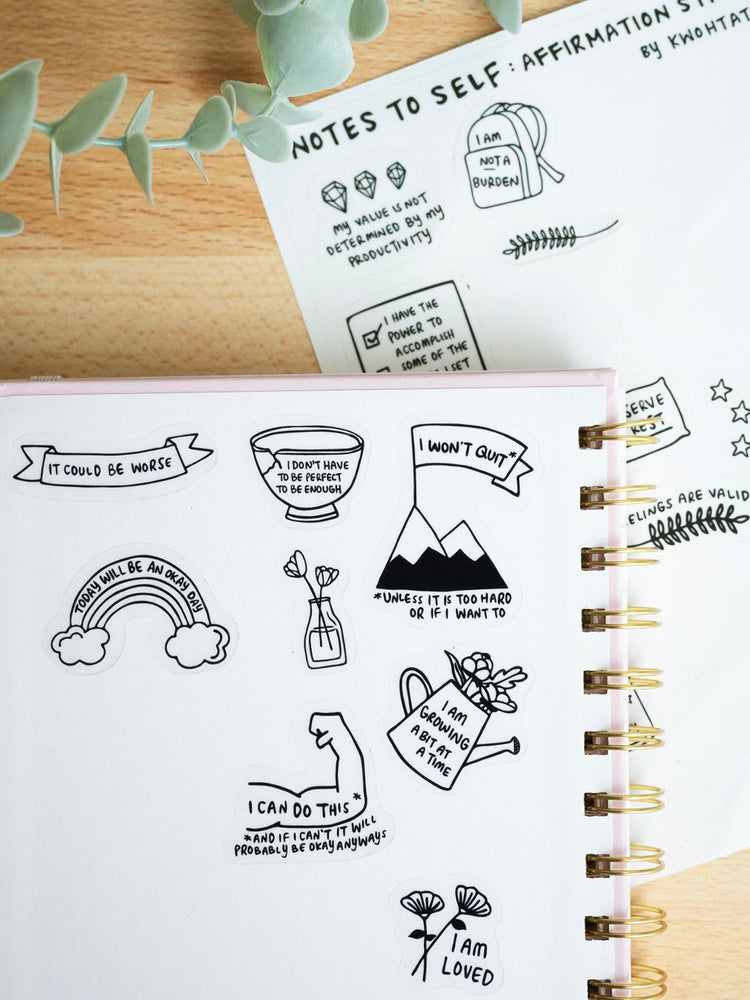 NOTES TO SELF: AFFIRMATION
BY
I AM
NOT A
BURDEN
MY VALUE IS NOT
DETERMINED BY MY
PRODUCTIVITY
I HAVE THE
POWER TO
ACCOMPLISH
SOME OF THE
REST
ARE VALID
IT COULD BE WORSE
I DON'T HAVE
TO BE PERFECT
TO BE ENOUGH
I WON'T QUIT*
*UNLESS IT IS TOO HARD
OR IF I WANT TO
TODAY WILL BE AN OKAY DAY
I AM
GROWING
A BIT AT
A TIME
I CAN DO THIS*
*AND IF I CAN'T IT WILL
PROBABLY BE OKAY ANYWAYS
I AM
LOVED